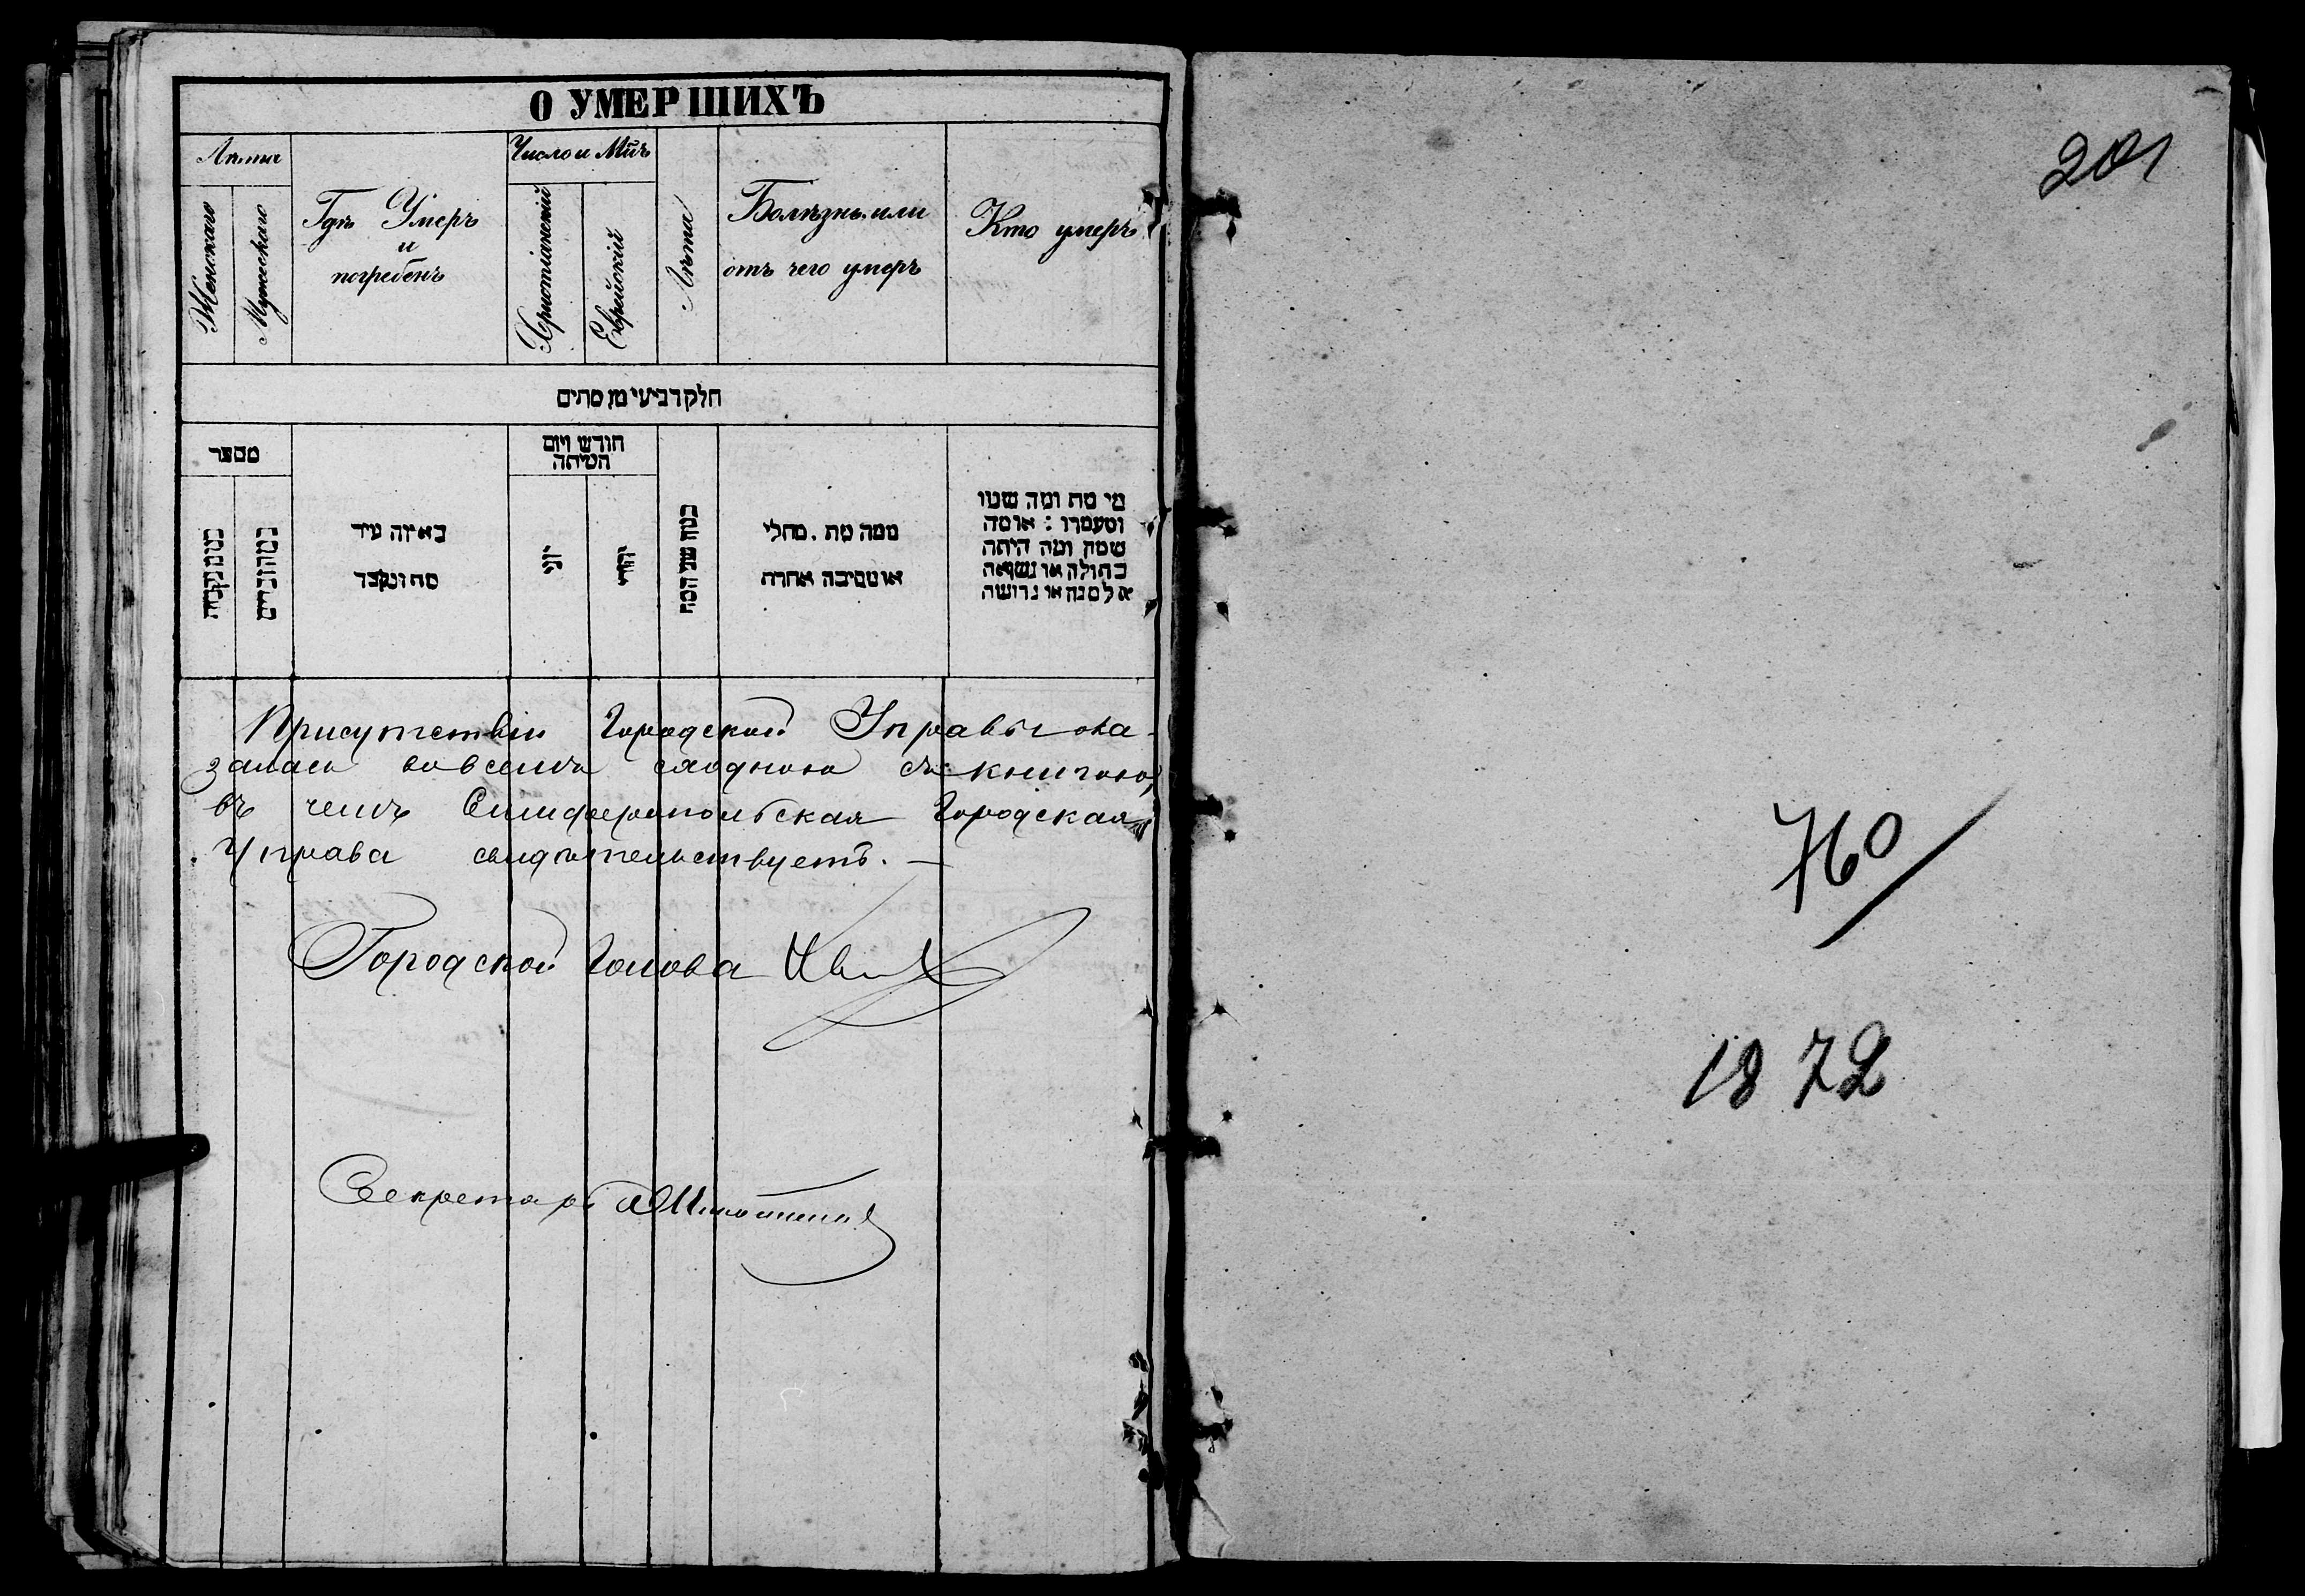 О УМЕРШИХЪ
Лѣта
Женскаго
Мужескаго
Гдѣ Умеръ
и
погребенъ
Число и Мцъ
Христіанскій
Еврейскій
Лѣта
Болѣзнь или
отъ чего умеръ
Кто умеръ
חלק רביעי מן מתים
מספר
חודש ויום
המיתה
באיזה עיר
מת ונקבר
יוני
יהודי
ממה מת . מחלי
או מסיבה אחרת
מי מת ומה שמו
ומעמדו : או מה
שמה ומה היתה
בתולה או נשואה
אלמנה או גרושה
Присутствіи Городской Управы ока-
залась во всемъ сходною съ книгою,
въ чемъ Симферопольская Городская
Управа свидѣтельствуетъ. —
Городской Голова
Секретарь
201
760
1872